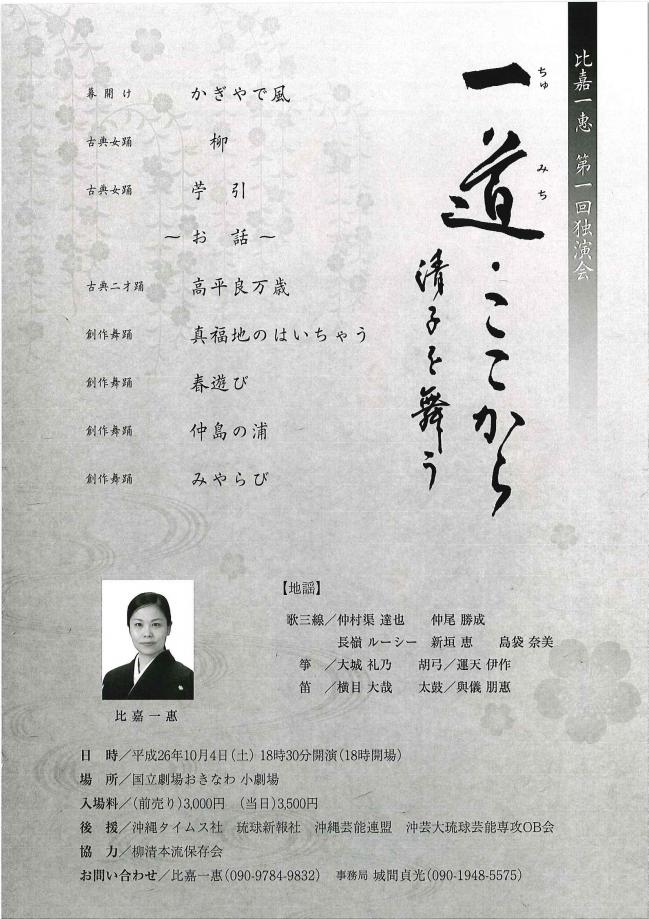 比嘉一惠　第一回独演会
一道・ここから
ちゅ　みち
清子を舞う
幕開け　かぎやで風
古典女踊　柳
古典女踊　苧引
～お話～
古典二才踊　高平良万歳
創作舞踊　真福地のはいちゃう
創作舞踊　春遊び
創作舞踊　仲島の浦
創作舞踊　みやらび
【地謡】
歌三線／仲村渠 達也　仲尾 勝成
長嶺 ルーシー　新垣 恵　島袋 奈美
箏　／大城 礼乃　胡弓／運天 伊作
笛　／横目 大哉　太鼓／與儀 朋惠
比嘉一惠
日　時／平成26年10月4日（土）18時30分開演（18時開場）
場　所／国立劇場おきなわ 小劇場
入場料／（前売り）3,000円　（当日）3,500円
後　援／沖縄タイムス社　琉球新報社　沖縄芸能連盟　沖芸大琉球芸能専攻OB会
協　力／柳清本流保存会
お問い合わせ／比嘉一惠（090-9784-9832）　事務局 城間貞光（090-1948-5575）